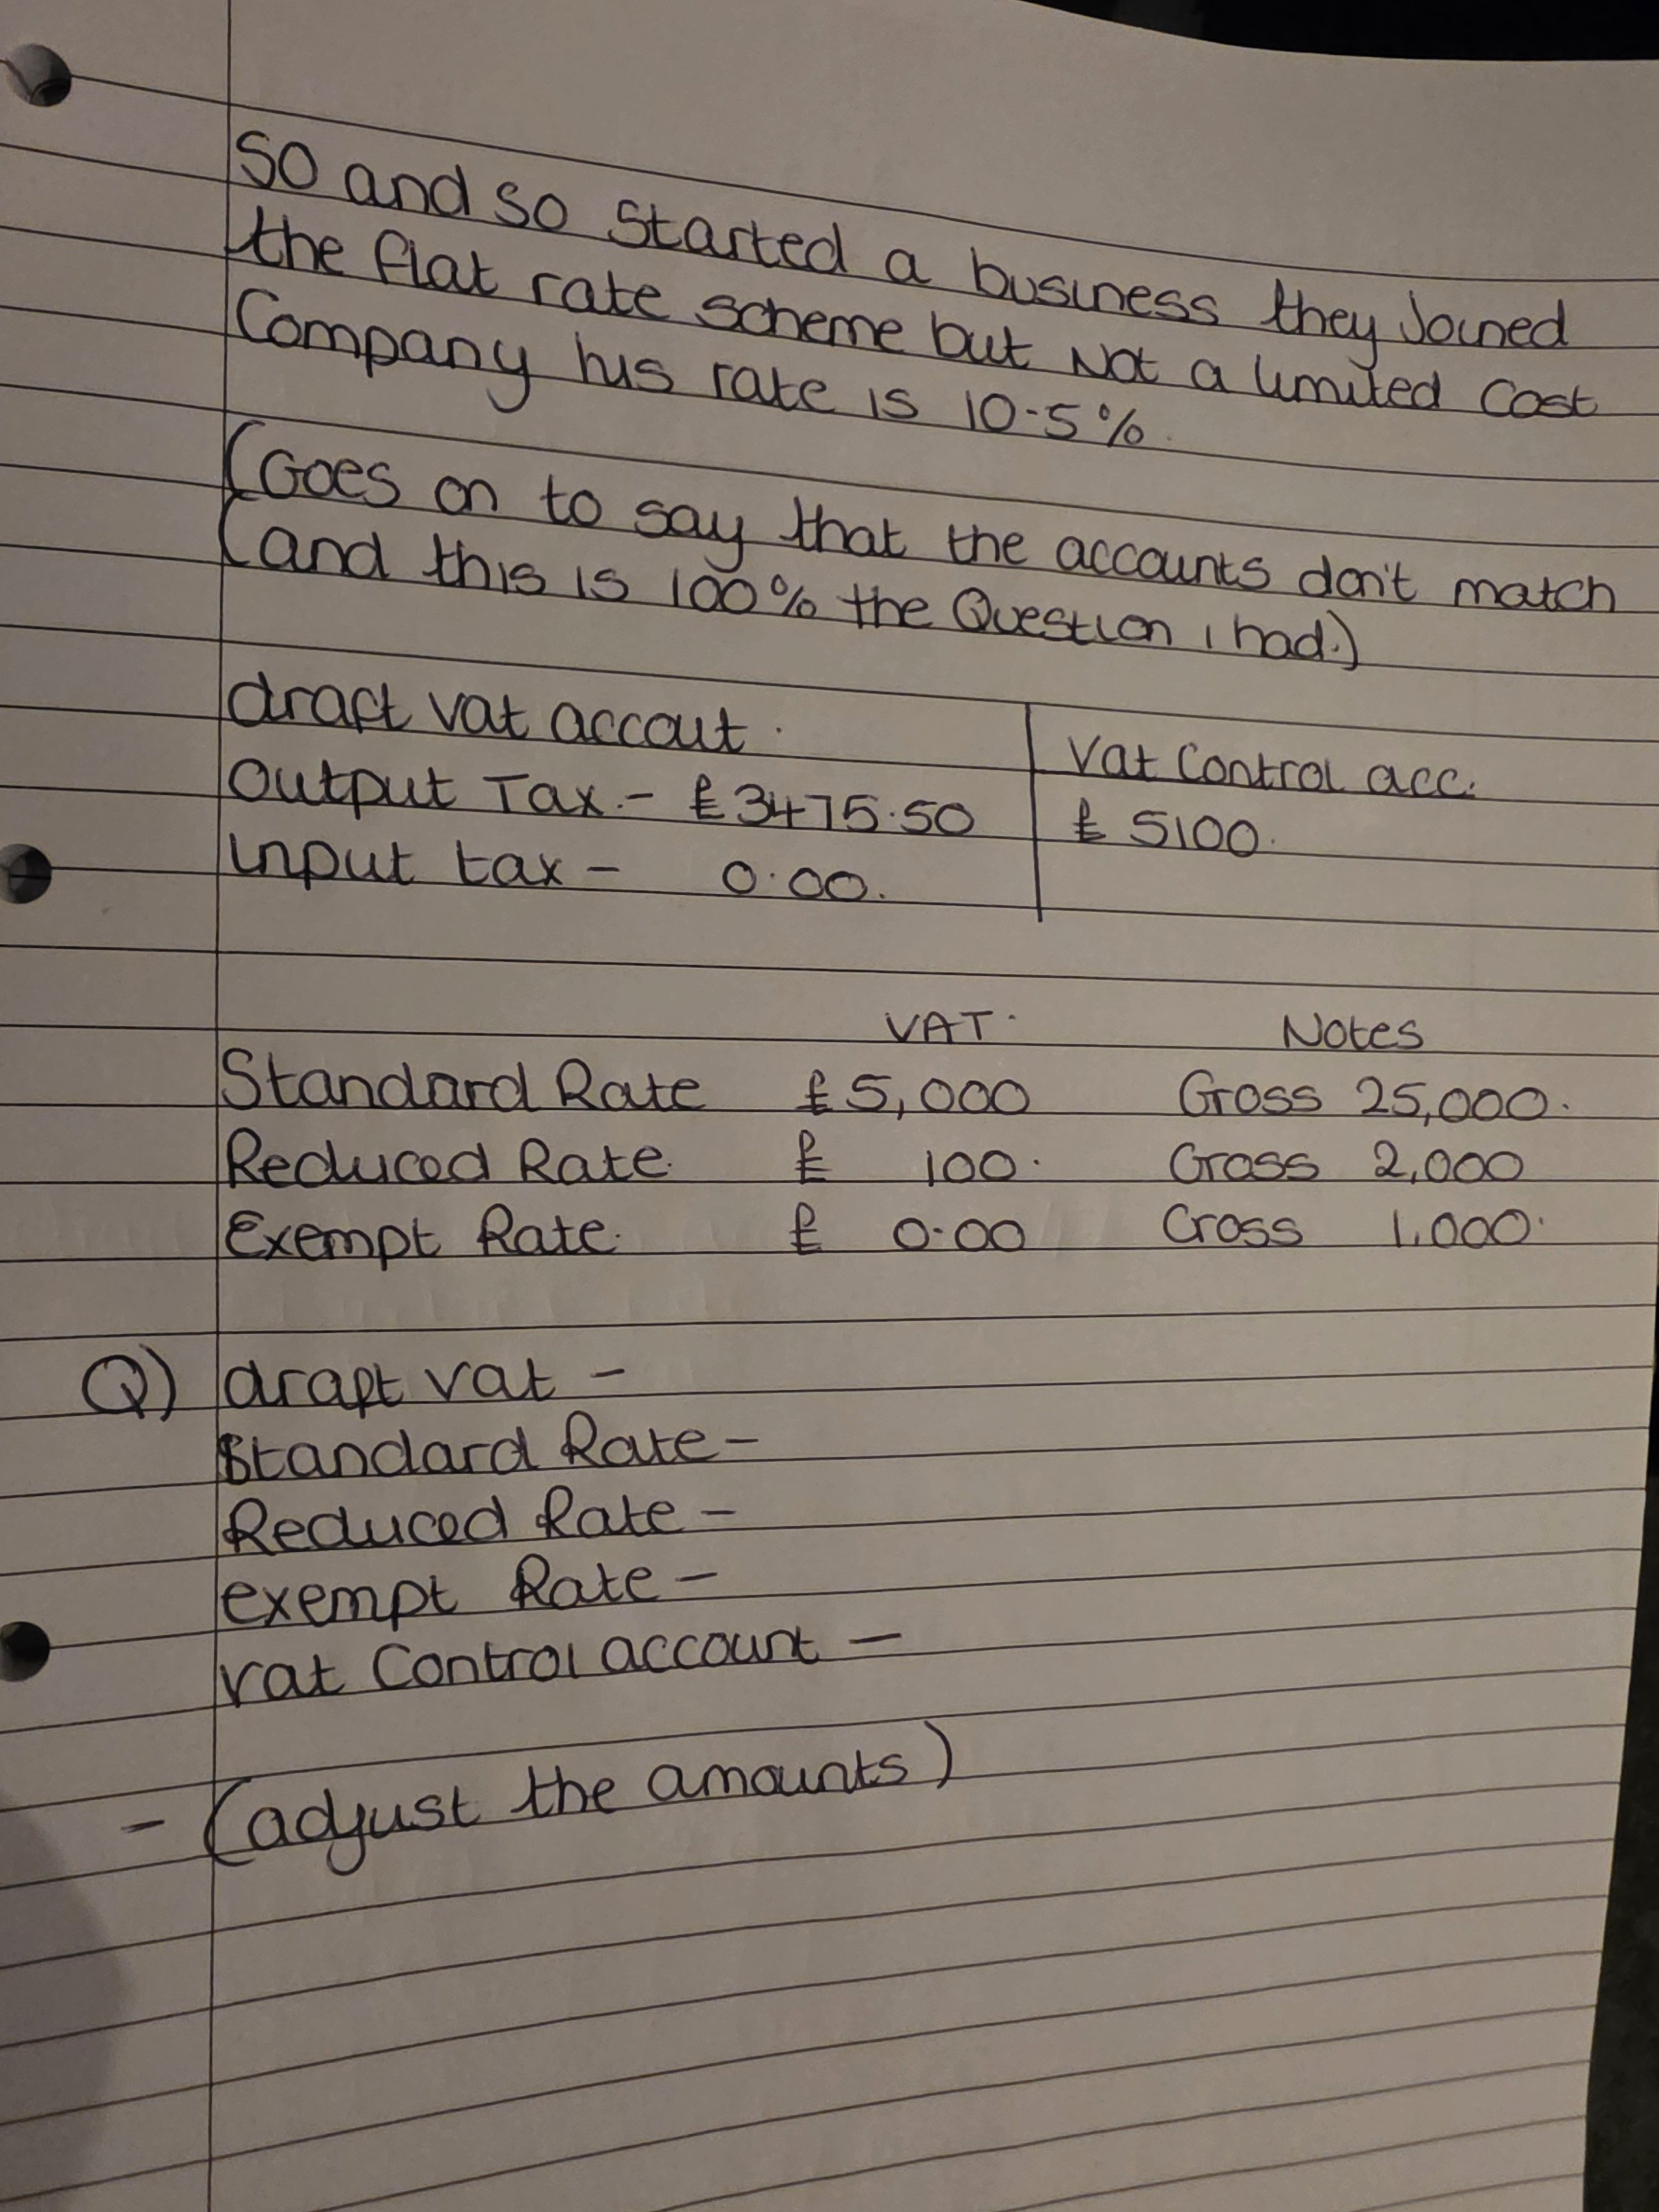 SO and so started a business they Joined
the flat rate scheme but Not a limited cost
Company his rate is 10.5%.
(Goes on to say that the accounts don't match
(and this is 100% the Question I had.)
draft vat accout.
Output Tax.- £3475.50
input tax - 0.00.
Vat Control acc.
£5100.
VAT. Notes
Standard Rate £5,000 Gross 25,000.
Reduced Rate. £ 100. Gross 2,000
Exempt Rate. £ 0.00 Gross 1,000.
Q) draft vat -
Standard Rate -
Reduced Rate -
exempt Rate -
vat Control account -
- (adjust the amounts)